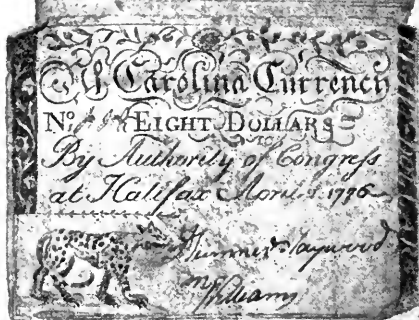 Carolina Currency
No. EIGHT DOLLARS
By Authority of Congress
at Halifax April 2. 1776
Haywood
Williams